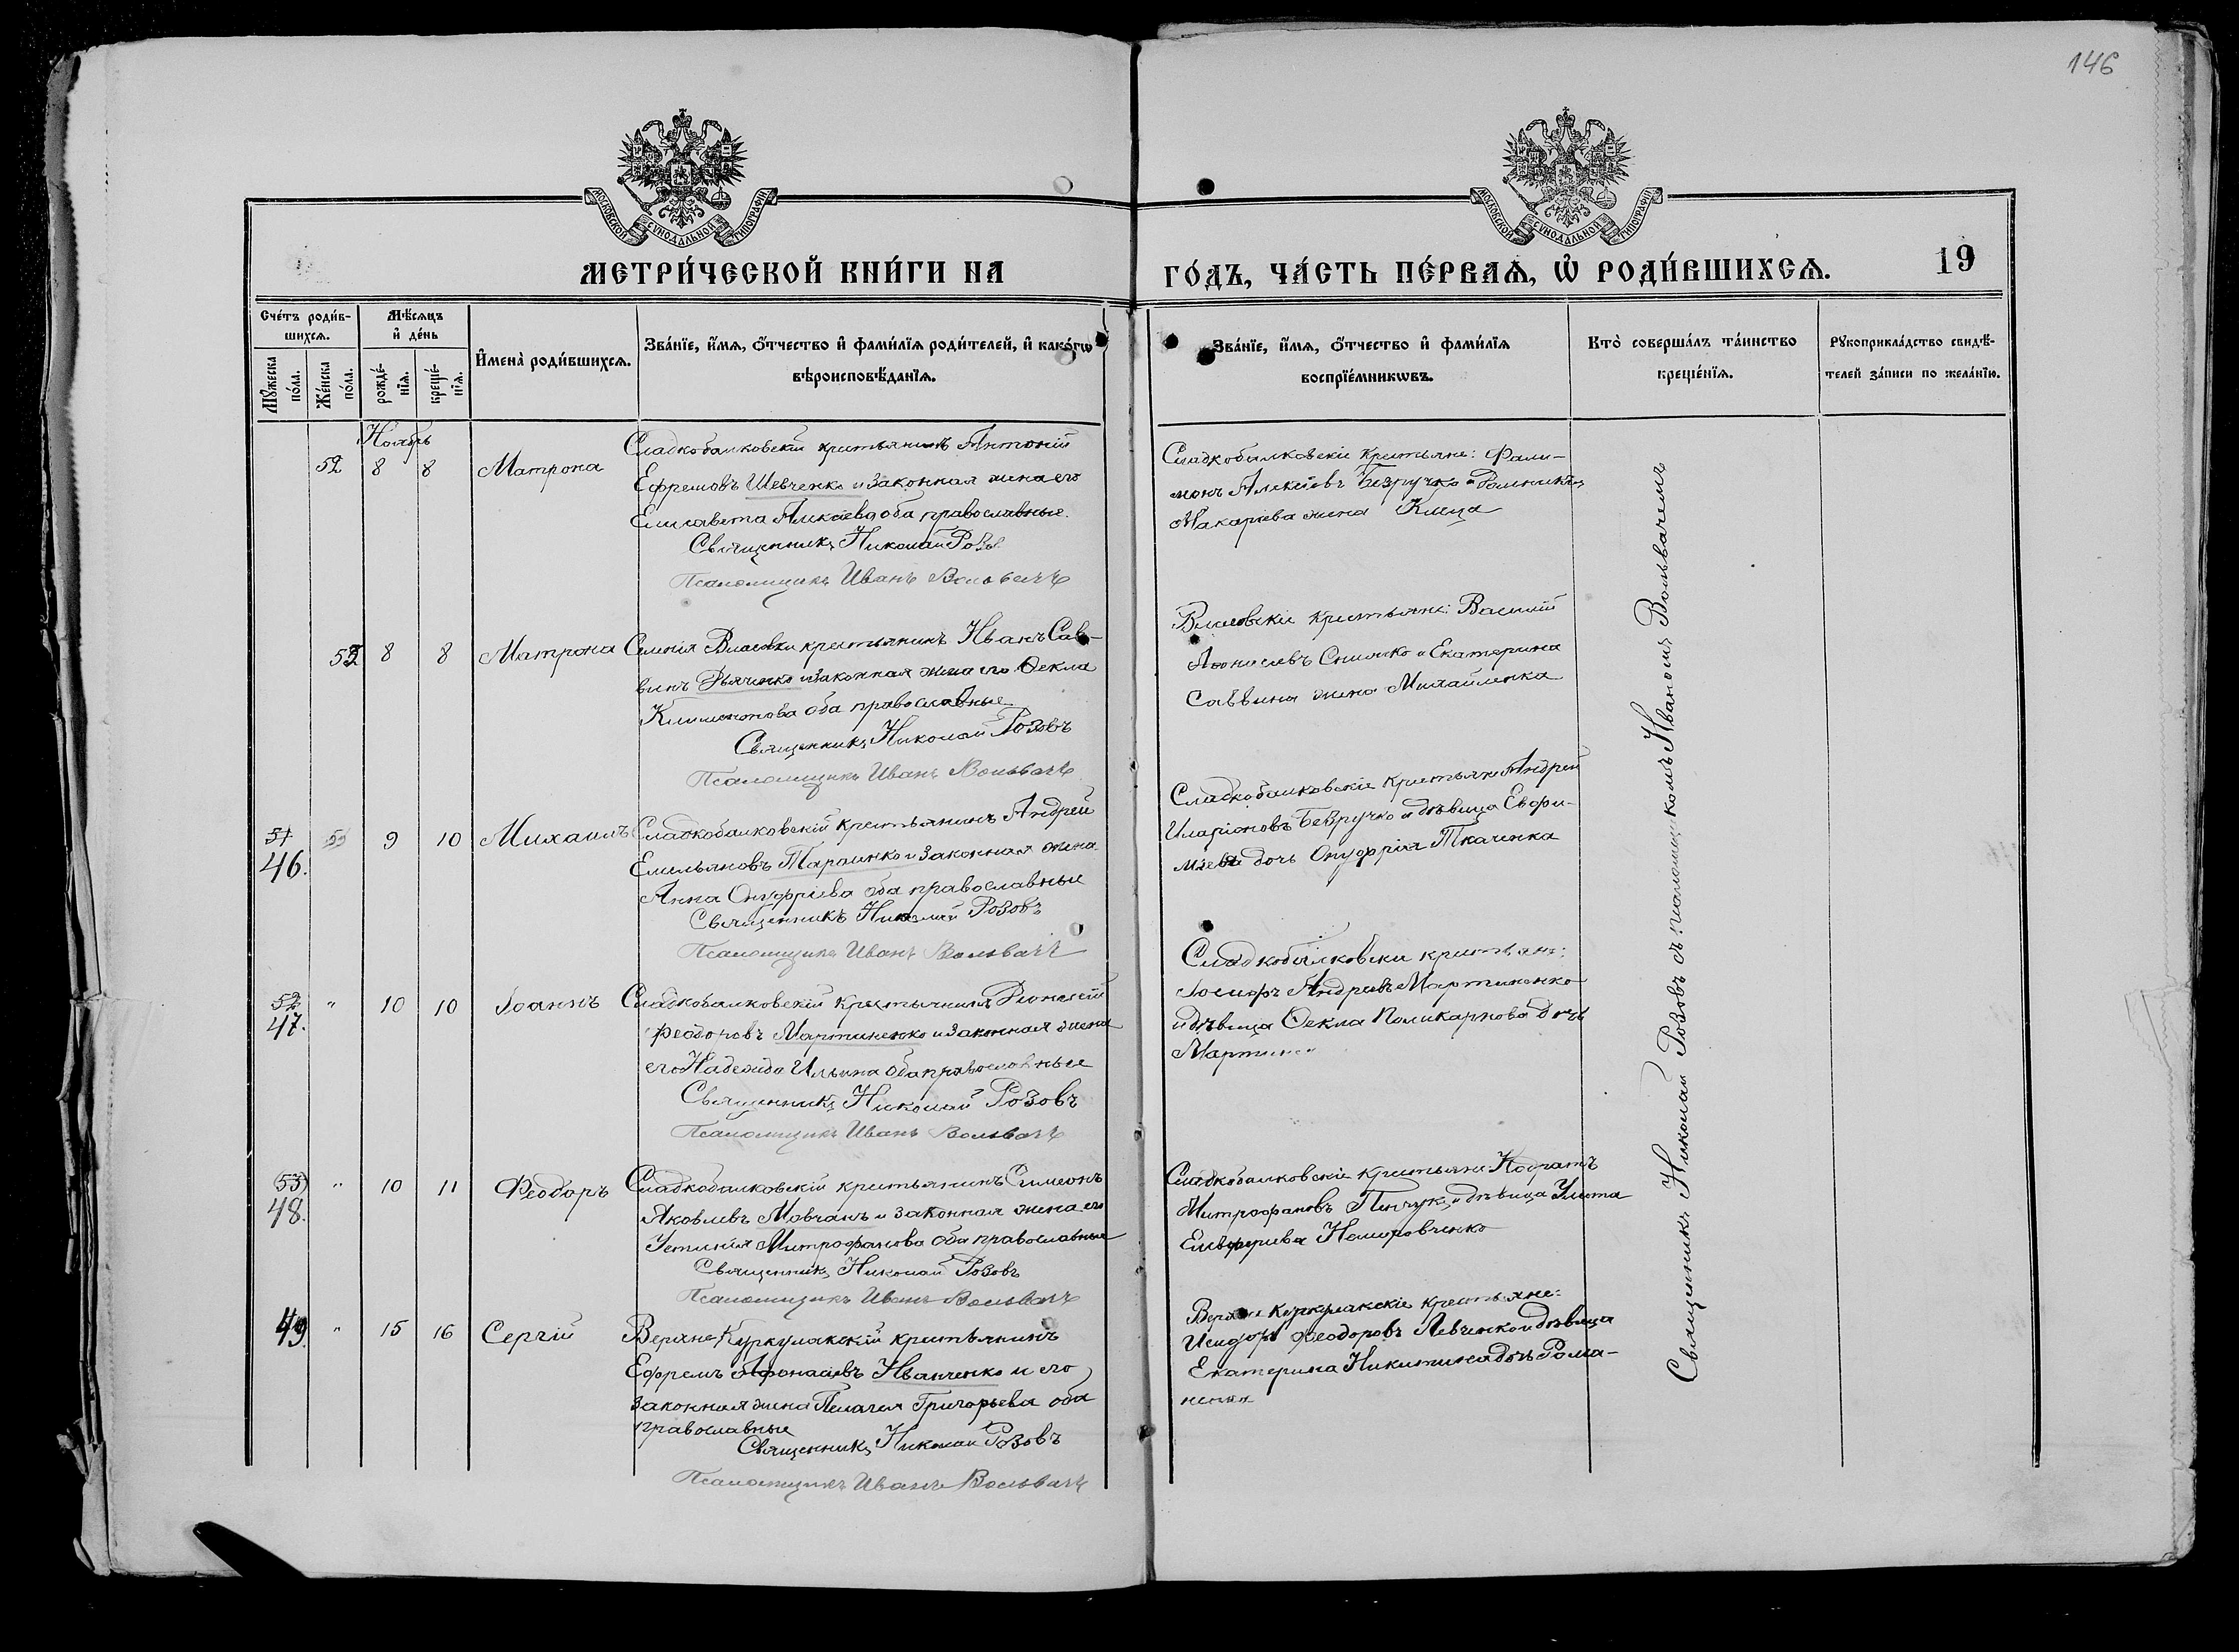 146
МОСКОВСКОЙ СѴНОДАЛЬНОЙ ТИПОГРАФІИ
МОСКОВСКОЙ СѴНОДАЛЬНОЙ ТИПОГРАФІИ
МЕТРИ́ЧЕСКОЙ КНИ́ГИ НА
ГО́ДЪ, ЧА́СТЬ ПЕ́РВАѦ, Ѡ҆ РОДИ́ВШИХСѦ.
19
Сче́тъ роди́в-
шихсѧ.
Мꙋ́жеска по́ла.
Же́нска по́ла.
Мѣ́сѧцъ
и҆ де́нь
рожде́-
нїѧ.
креще́-
нїѧ.
И҆мена̀ роди́вшихсѧ.
Зва́нїе, и҆́мѧ, ѻ҆́тчество и҆ фами́лїѧ роди́телей, и҆ како́гѡ
вѣроисповѣ́данїѧ.
Зва́нїе, и҆́мѧ, ѻ҆́тчество и҆ фами́лїѧ
воспрїе́мникѡвъ.
Кто̀ соверша́лъ та́инство
креще́нїѧ.
Рꙋкоприкла́дство свидѣ́-
телей за́писи по жела́нїю.
Ноябрь
52 8 8 Матрона
Сладкобалковскій крестьянинъ Антоній
Ефремовъ Шевченко и законная жена его
Елисавета Алексѣева оба православные.
Священникъ Николай Розов
Псаломщикъ Иванъ Вольвачъ
Сладкобалковскіе крестьяне: Фили-
монъ Алексѣевъ Безручко и
Макаріева жена
53 8 8 Матрона
Селенія Власовки крестьянинъ Иванъ Сав-
винъ Дьяченко и законная жена его Ѳекла
Климентова оба православные
Священникъ Николай Розовъ
Псаломщикъ Иванъ Вольвачъ
Власовскіе крестьяне: Василій
и Екатерина
Саввина жена Михайленка
51 46. 9 10 Михаилъ
Сладкобалковскій крестьянинъ Андрей
Емельяновъ Тараненко и законная жена
Анна Онуфріева оба православные
Священникъ Николай Розовъ
Псаломщикъ Иванъ Вольвачъ
Сладкобалковскіе крестьяне Андрей
Иларіоновъ Безручко и дѣвица Евфи-
міева дочь Онуфрія Ткаченка
52 47. " 10 10 Іоаннъ
Сладкобалковскій крестьянинъ Діонисій
Феодоровъ Мартиненко и законная жена
его Надежда Ильина оба православные
Священникъ Николай Розовъ
Псаломщикъ Иванъ Вольвачъ
Сладкобалковскіе крестьяне:
Іосифъ Андреевъ Мартиненко
и дѣвица Ѳекла Поликарпова дочь
53 48. " 10 11 Феодоръ
Сладкобалковскій крестьянинъ Симеонъ
Яковлевъ Мовчанъ и законная жена его
Устинія Митрофанова оба православные
Священникъ Николай Розовъ
Псаломщикъ Иванъ Вольвачъ
Сладкобалковскіе крестьяне Кодратъ
Митрофановъ Пинчукъ и дѣвица Улита
Елевферіева
49 " 15 16 Сергій
Верхне-Куркулакскій крестьянинъ
Ефремъ Афонасіевъ Иванченко и его
законная жена Пелагея Григорьева оба
православные
Священникъ Николай Розовъ
Псаломщикъ Иванъ Вольвачъ
Верхне Куркулакскіе крестьяне:
Исидоръ Феодоровъ Левченко и дѣвица
Екатерина Никитина дочь Рома-
ненка
Священникъ Николай Розовъ съ псаломщикомъ Иваномъ Вольвачемъ